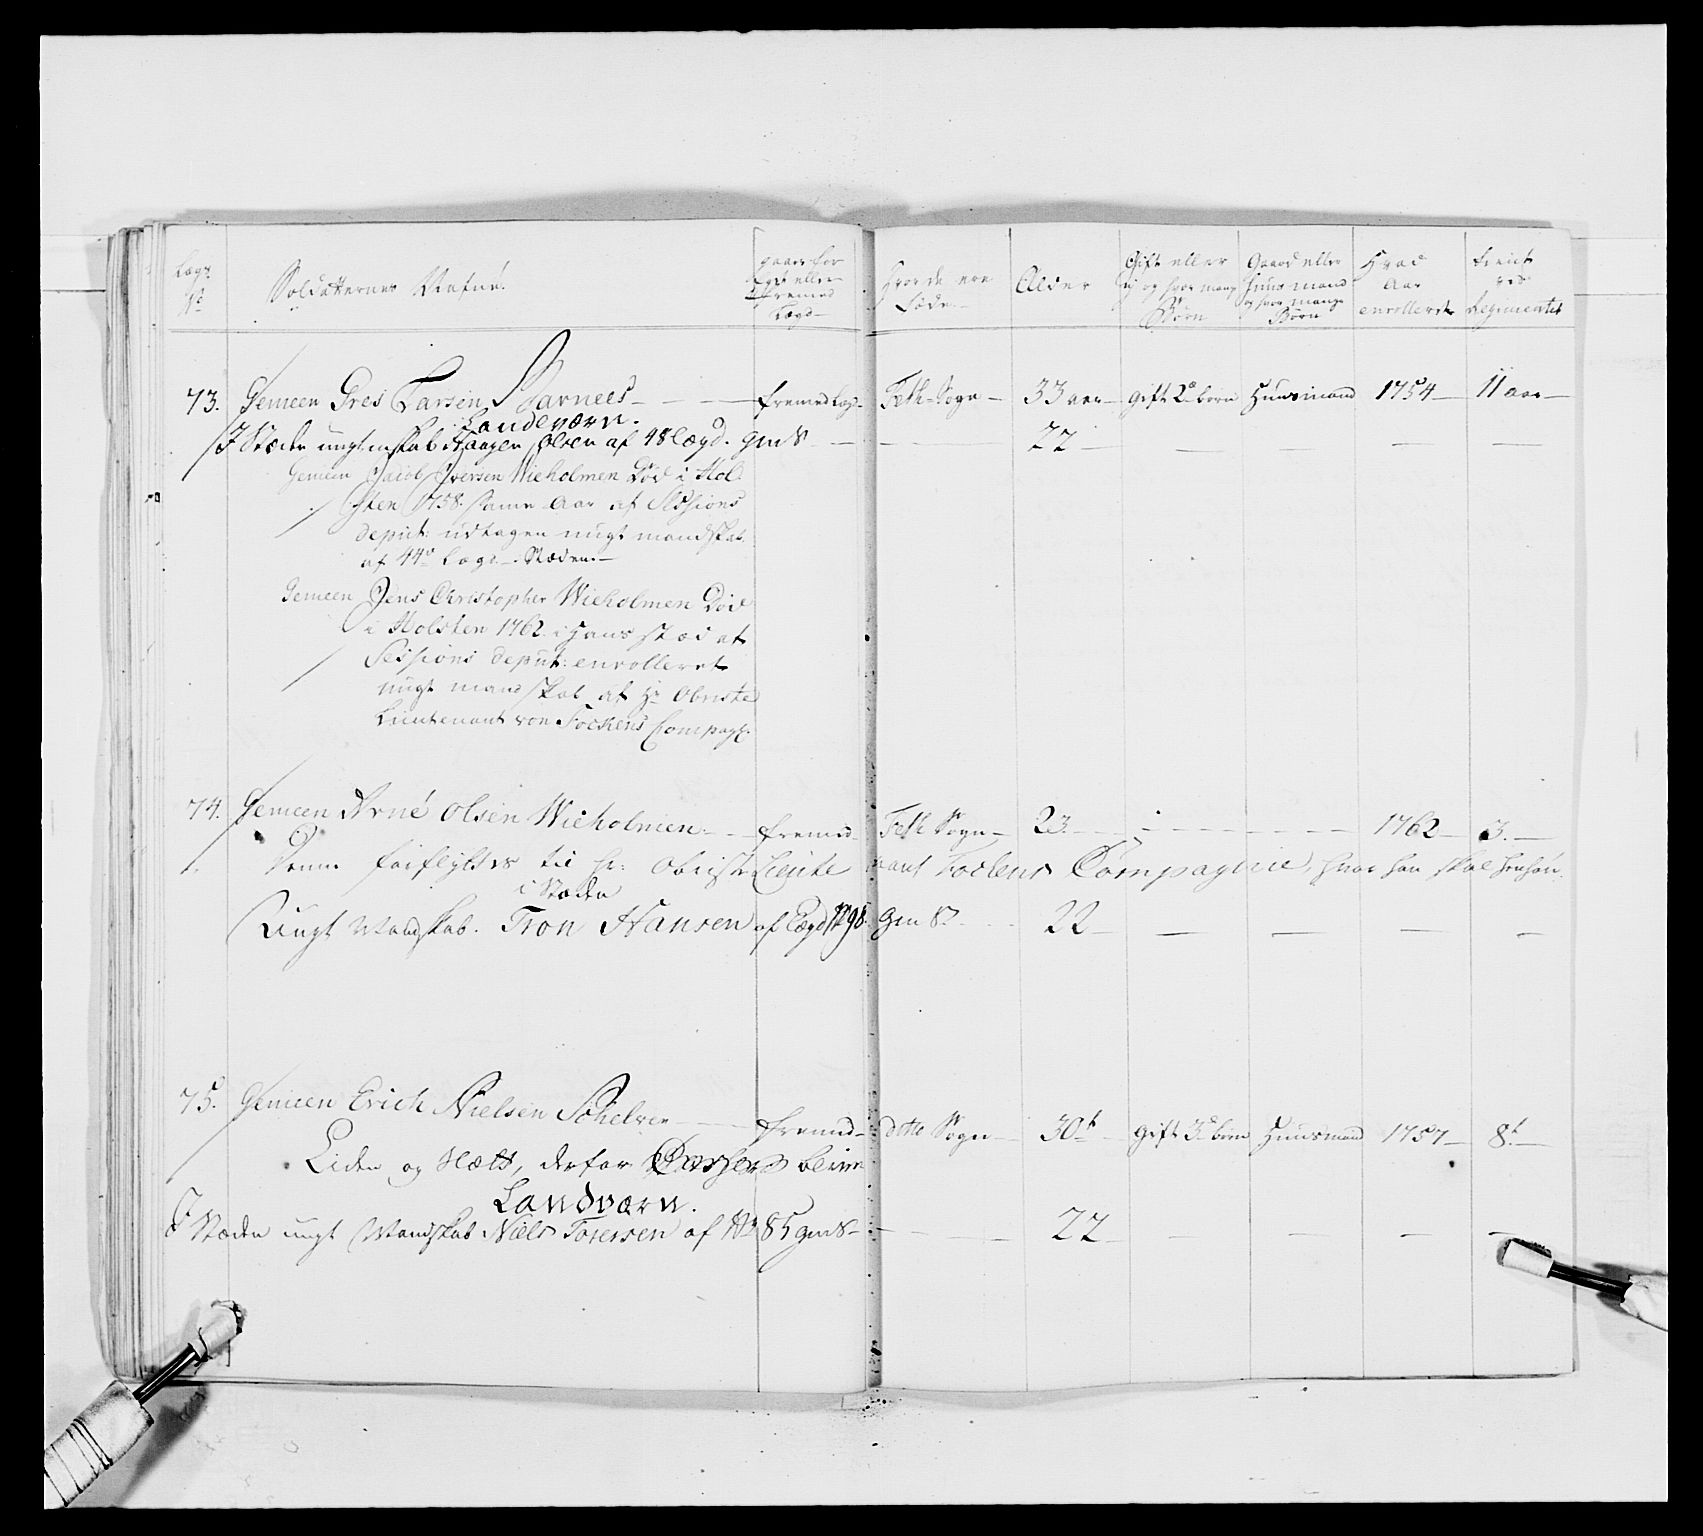 Lægs No
Soldatternes Nafne.
gaaer for Egit eller fremmed Lægd
Hvor de ere Føde
Alder
Gift eller ej og hvor mange Børn
Gaard eller Huusmand og hvor mange Børn
Hvad Aar enrolleret
tient ved Regimentet
73. Gemeen Gres Larsen Warnees fremed Læg Feth Sogn 33 aar gift 2 børn Huusmand 1754 11 aar
Landeværn.
I Stæden ungt mskab Haagen Olsen af 48 lægd. gml 8 22
Gemeen Jacob Iversen Wieholmen Død i Hol
sten 1758. samme Aar af Sessions
deput: udtagen ungt mandskab
af 44de Lægd i Stæden.
Gemeen Jens Christopher Wieholmen Død
i Holsten 1762. i Hans stæd at
Sessions deput: enrolleret
ungt mandskab af Hr Obriste
Lieutenant von Fockens Compag:
74. Gemeen Arne Olsen Wieholmen fremed Feth Sogn 23 1762 3.
Denne forflyttes til Hr: Obrist Lieutenant Fockens Compagnie, hvor han skal henhøre.
i Stæden
Ungt Mandskab. Tron Hansen af Lægd No 98. gml 8 22
75. Gemeen Erich Nielsen Schelven fremed ditto Sogn 30 gift 3 børn Huusmand 1757 8
Liden og Slett, derfor Casseres bliver
Landværn.
I Stæden ungt Mandskab Niels Toresen af No 85 gml 8 22